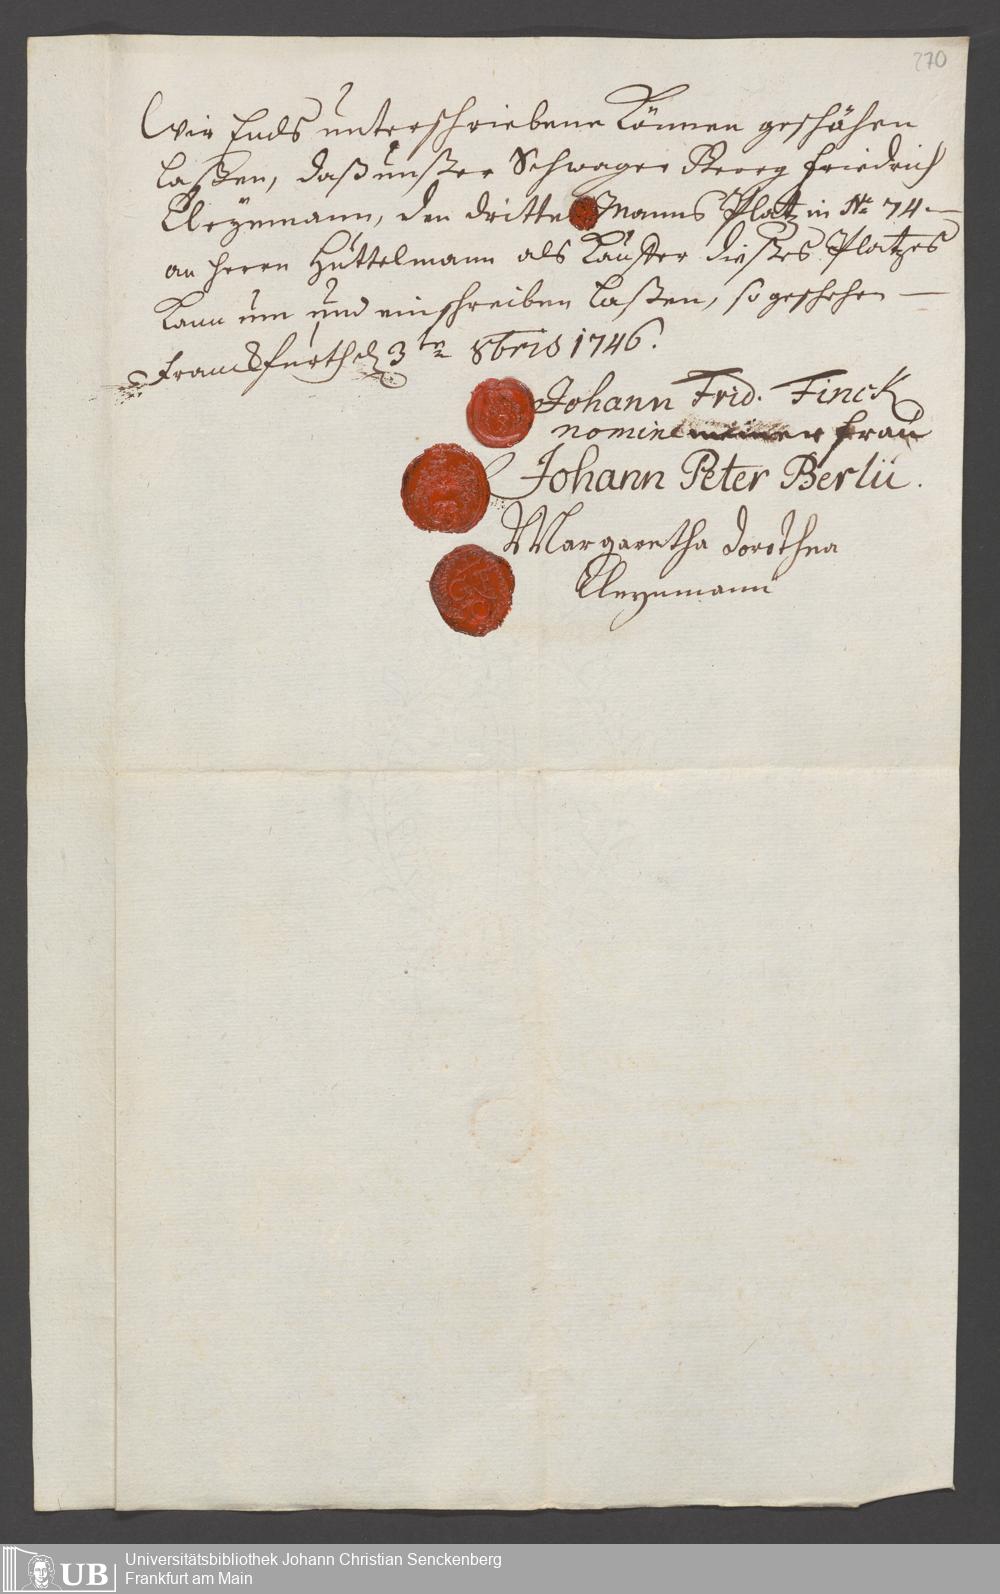 270
Wir Ends unterschriebene können geschähen
laßen, daß unßer Schwager Georg Friedrich
Cleÿnmann, den dritte Manns Platz in No 74 —
an Herrn Hüttelmann als Käuffer dießes Platzes
kann um und einschreiben laßen, so geschehen —
Franckfurth d 3ten 8bris 1746.
Johann Frid. Finck
nomine meiner frau
Johann Peter Berlü.
Margaretha Dorothea
Cleynmann
UB
Universitätsbibliothek Johann Christian Senckenberg
Frankfurt am Main